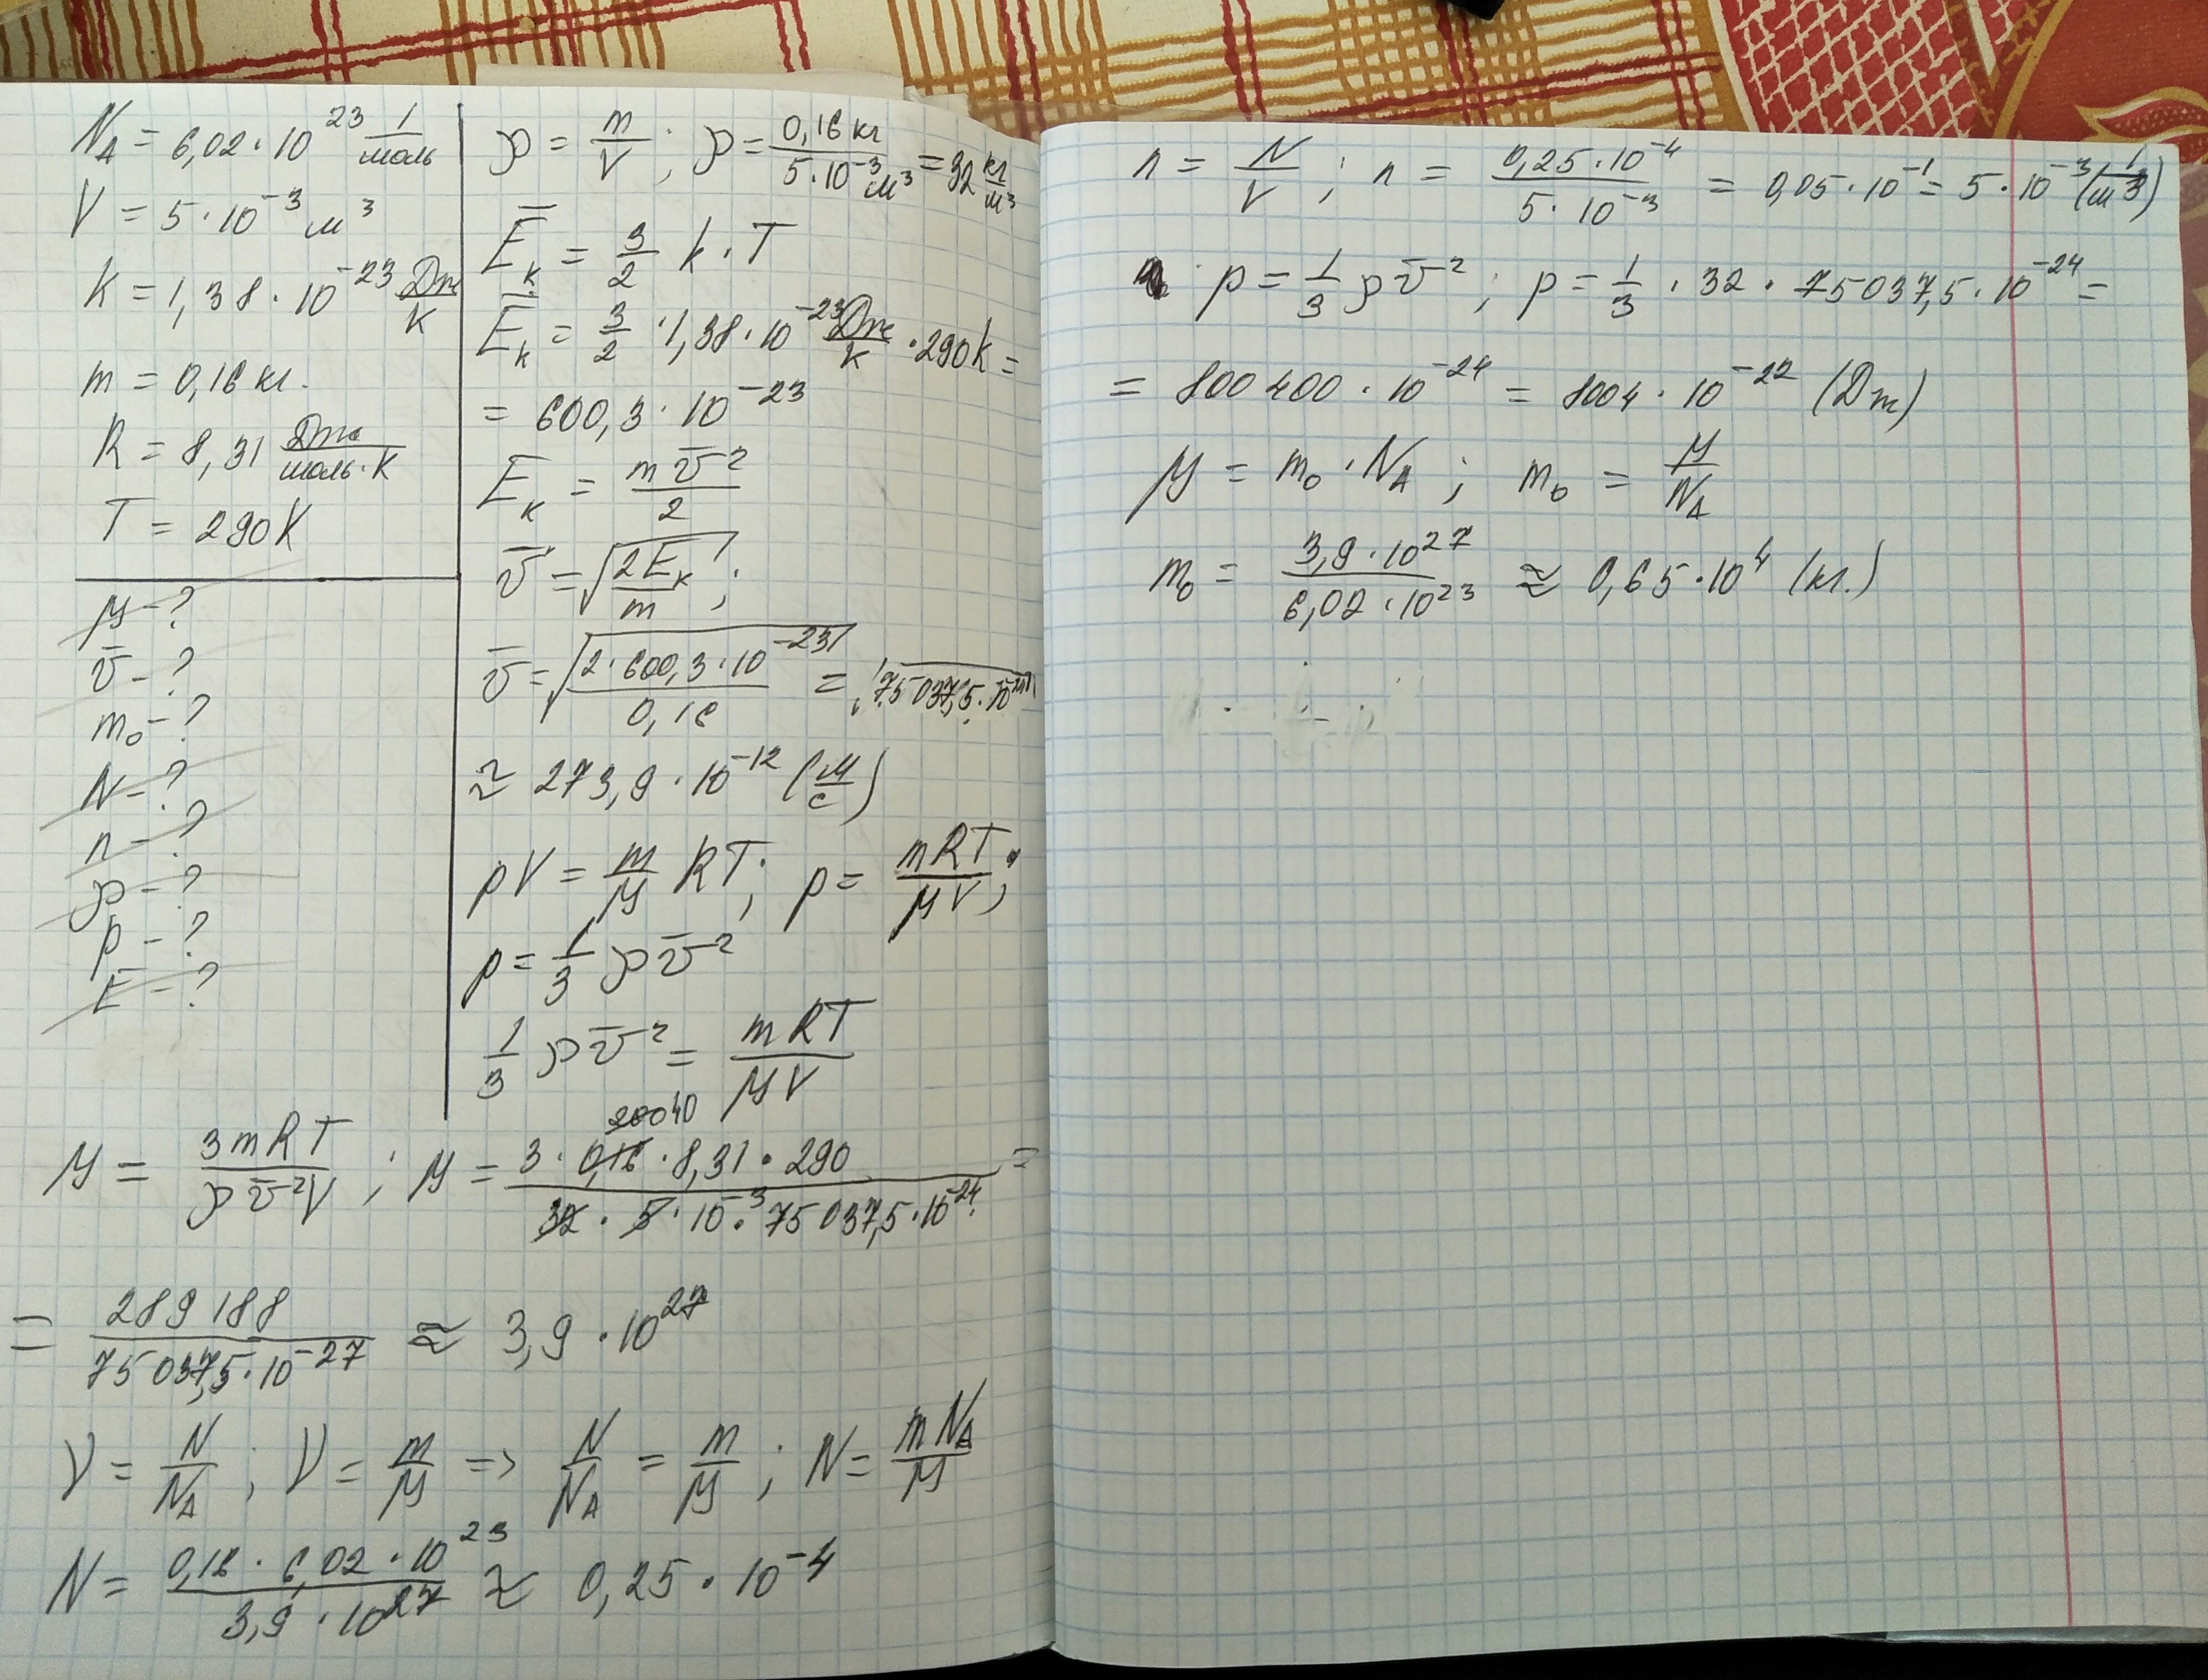 N_A = 6,02 · 10^23 1/моль
V = 5 · 10^-3 м^3
k = 1,38 · 10^-23 Дж/К
m = 0,16 кг.
R = 8,31 Дж/(моль · К)
T = 290К
μ - ?
v̄ - ?
m₀ - ?
N - ?
n - ?
ρ - ?
p - ?
E - ?
ρ = m/V ; ρ = 0,16 кг / 5 · 10^-3 м^3 = 32 кг/м^3
Ē_k = 3/2 k · T
Ē_k = 3/2 · 1,38 · 10^-23 Дж/К · 290К =
= 600,3 · 10^-23
Ē_k = m v̄^2 / 2
v̄ = √(2E_k / m) ;
v̄ = √(2 · 600,3 · 10^-23 / 0,16) = √(75037,5 · 10^-24)
≈ 273,9 · 10^-12 (м/с)
pV = m/μ RT ; p = mRT / μV ;
p = 1/3 ρ v̄^2
1/3 ρ v̄^2 = mRT / μV
μ = 3mRT / ρ v̄^2 V ; μ = 3 · 0,16 · 8,31 · 290 / 32 · 5 · 10^-3 · 75037,5 · 10^-24 =
= 289188 / 75037,5 · 10^-27 ≈ 3,9 · 10^27
ν = N/N_A ; ν = m/μ => N/N_A = m/μ ; N = mN_A / μ
N = 0,16 · 6,02 · 10^23 / 3,9 · 10^27 ≈ 0,25 · 10^-4
n = N/V ; n = 0,25 · 10^-4 / 5 · 10^-3 = 0,05 · 10^-1 = 5 · 10^-3 (1/м^3)
p = 1/3 ρ v̄^2 ; p = 1/3 · 32 · 75037,5 · 10^-24 =
= 800400 · 10^-24 = 8004 · 10^-22 (Дж)
μ = m₀ · N_A ; m₀ = μ/N_A
m₀ = 3,9 · 10^27 / 6,02 · 10^23 ≈ 0,65 · 10^4 (кг.)